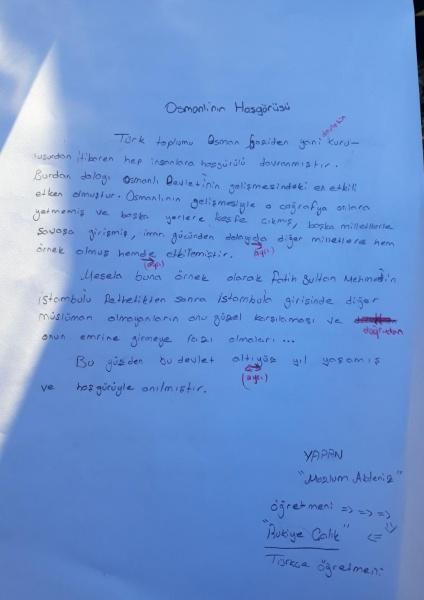 Osmanlı'nın Hoşgörüsü
Türk toplumu Osman Gaziden yani devletin kuru-
luşundan itibaren hep insanlara hoşgörülü davranmıştır.
Burdan dolayı Osmanlı Devleti'nin gelişmesindeki en etkili
etken olmuştur. Osmanlının gelişmesiyle o coğrafya onlara
yetmemiş ve başka yerlere keşfe çıkmış, başka milletlerle
savaşa girişmiş, gücünden dolayıda diğer milletlere hem
(ayrı)
örnek olmuş hemde etkilemiştir.
(ayrı)
Mesela buna örnek olarak Fatih Sultan Mehmed'in
İstanbulu Fethetikten sonra İstanbula girişinde diğer
müslüman olmayanların onu güzel karşılaması ve
doğrudan
onun emrine girmeye razı olmaları...
Bu yüzden bu devlet altıyüz yıl yaşamış
(ayrı)
ve hoşgörüyle anılmıştır.
YAPAN
"Mazlum Akdeniz"
öğretmeni => => =>
"Rukiye Çalık" <=
Türkçe öğretmeni